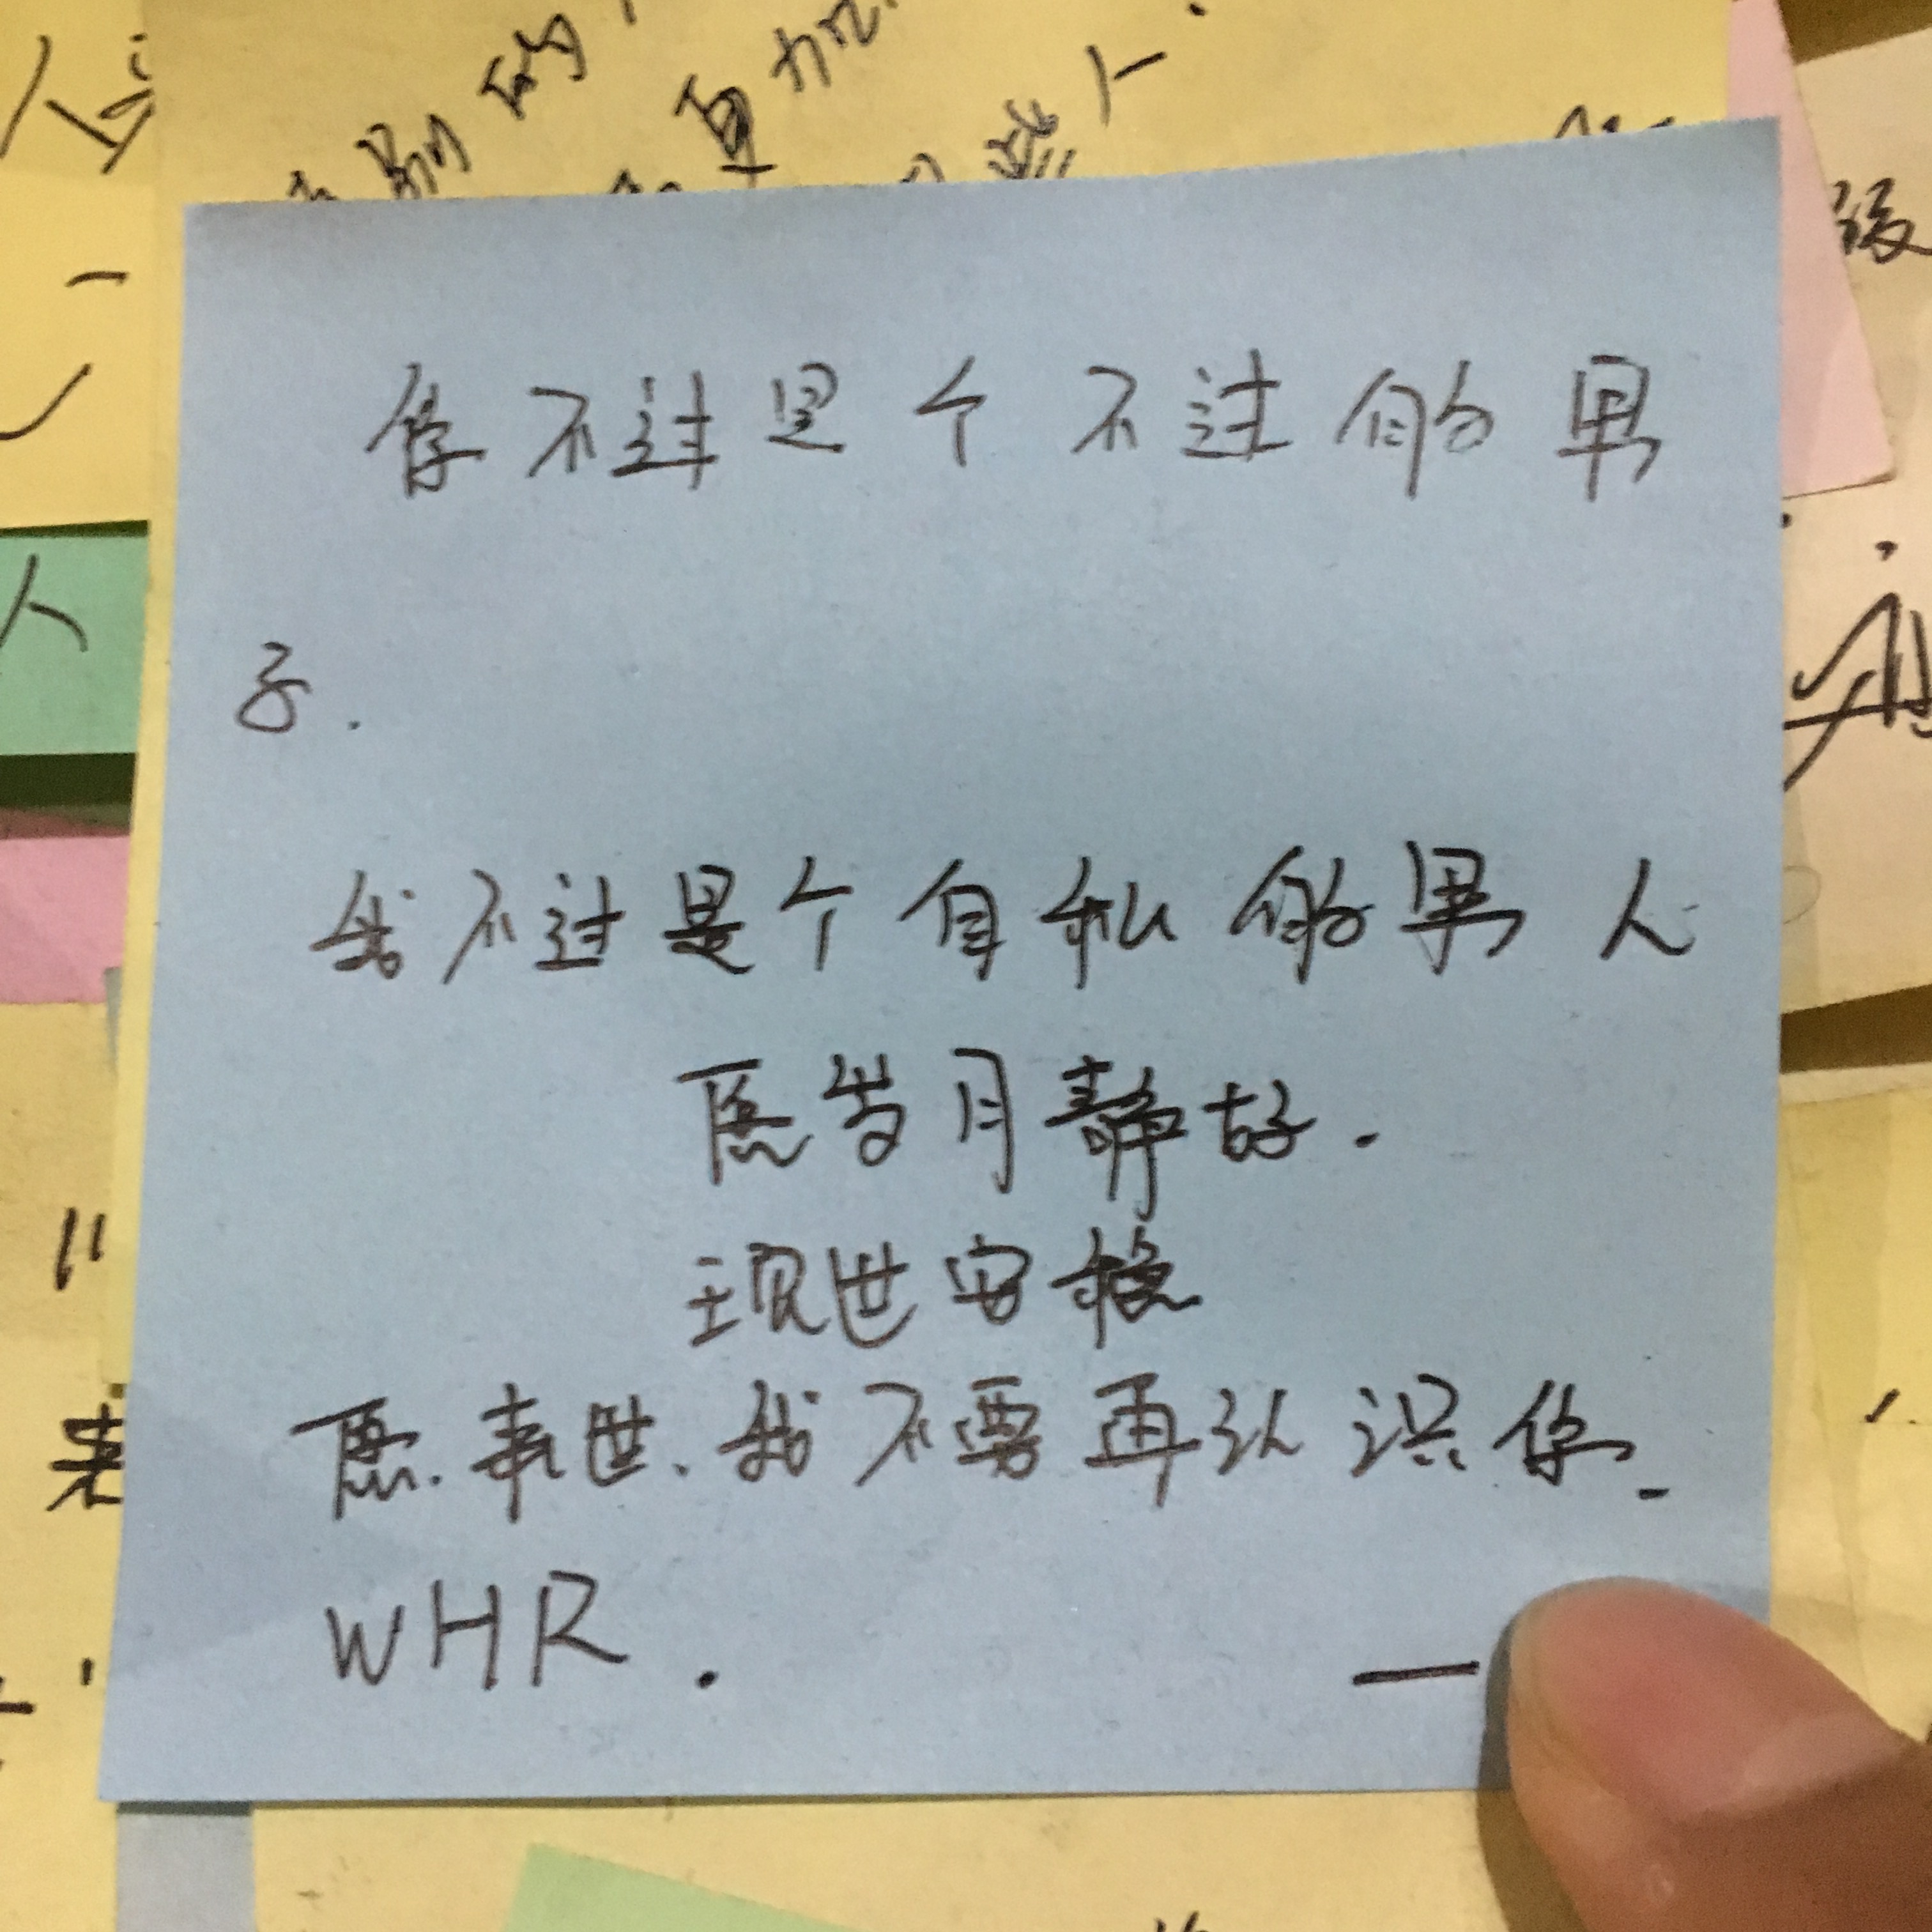 你不过是个不过的男
子.
我不过是个自私的男人
愿岁月静好.
现世安稳
愿.来世.我不要再认识你.
WHR.